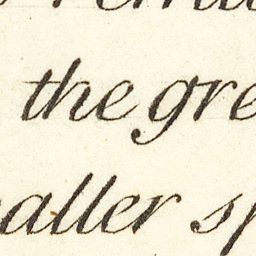 the gre
aller sp